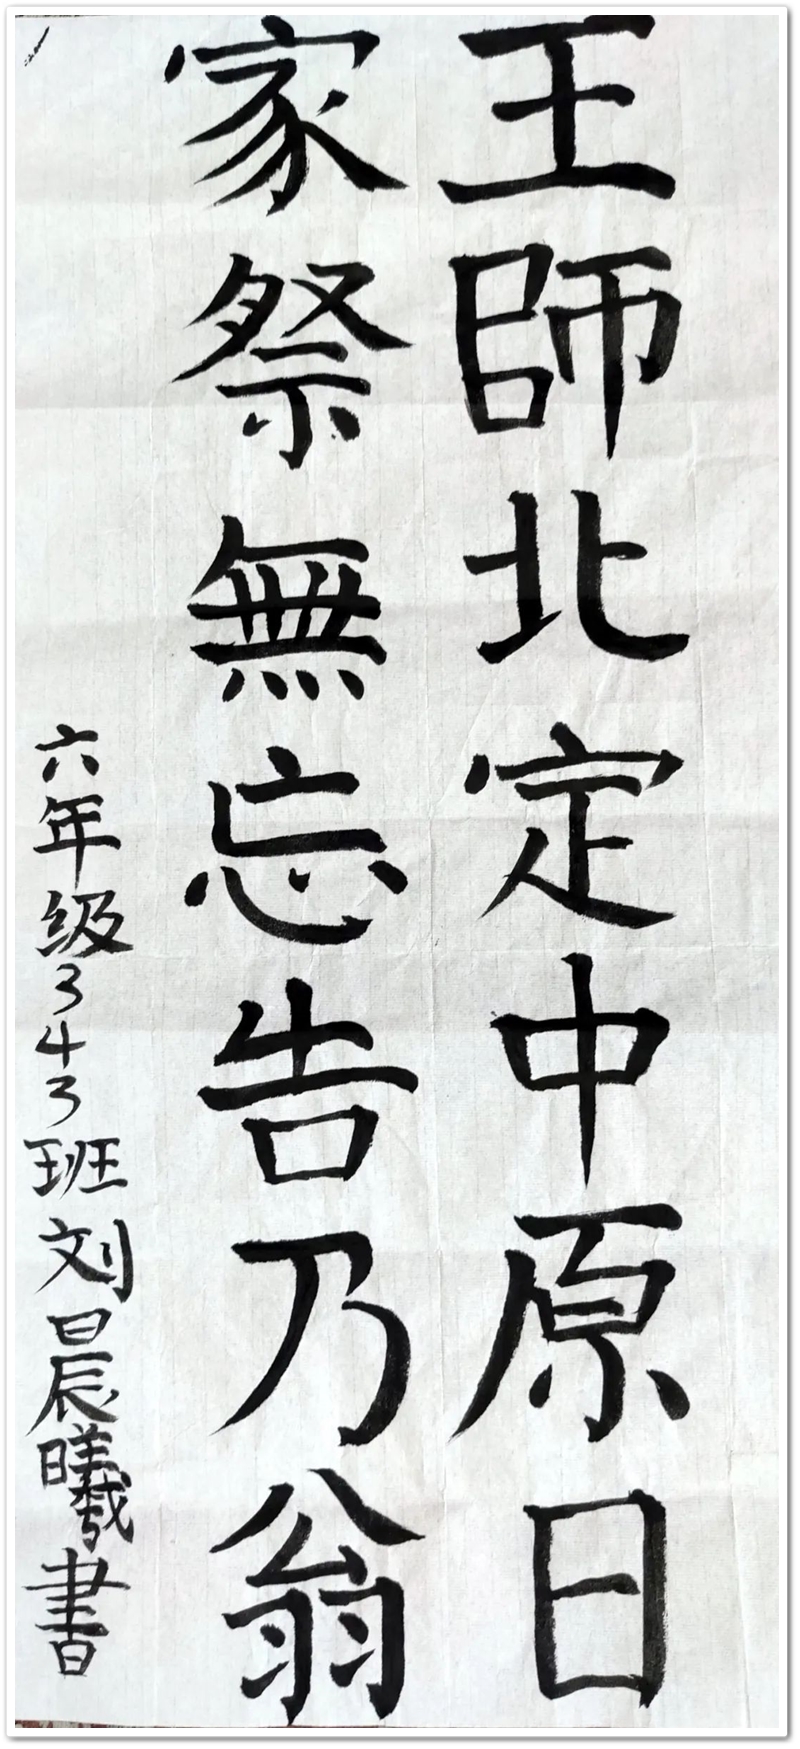 王師北定中原日
家祭無忘告乃翁
六年级343班刘晨曦書